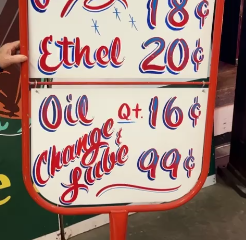 18¢
Ethel 20¢
Oil Qt. 16¢
Change &
Lube 99¢